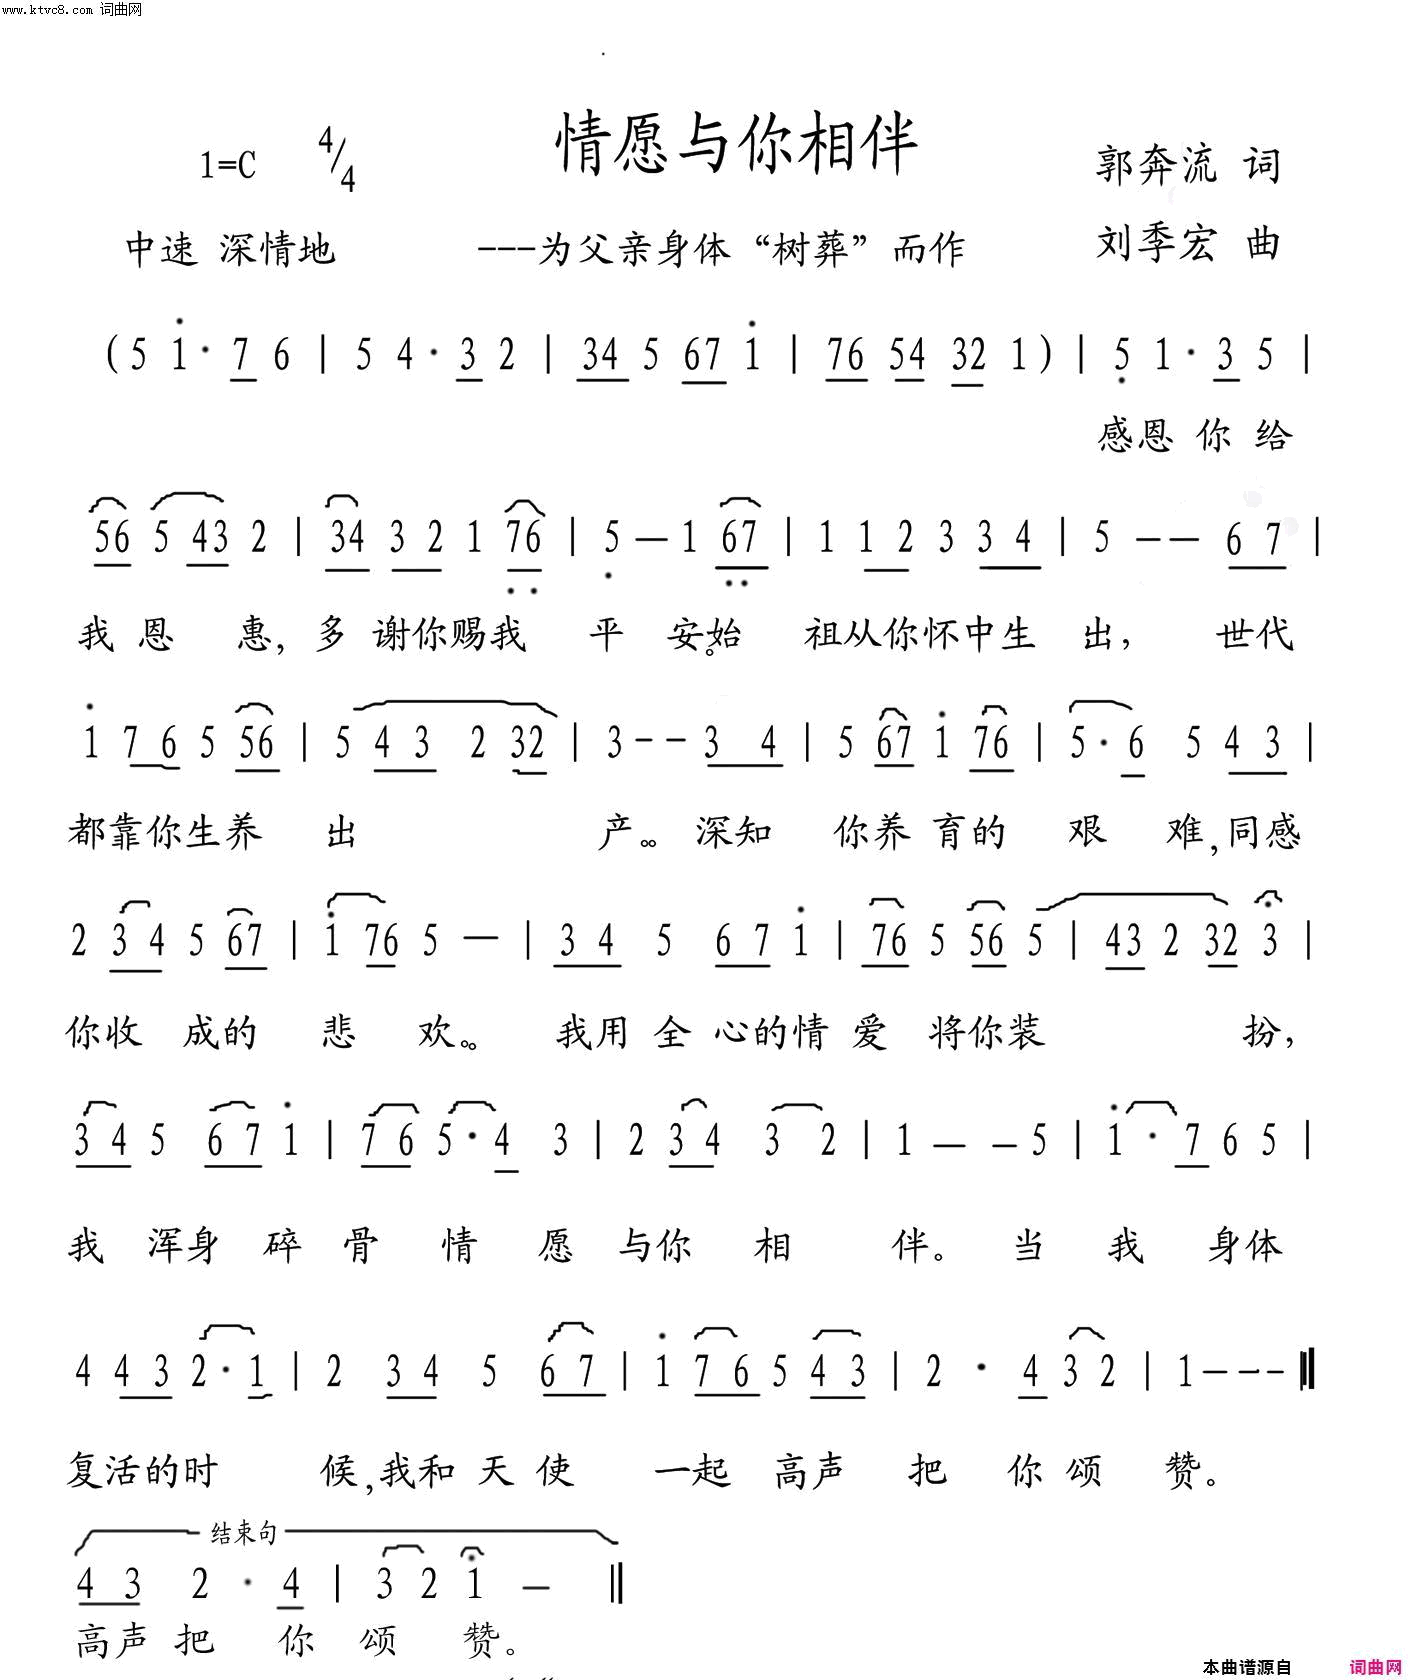 www.ktvc8.com 词曲网
情愿与你相伴
1=C 4/4
郭奔流 词
中速 深情地 ---为父亲身体“树葬”而作 刘季宏 曲
(5 i· 7 6 | 5 4· 3 2 | 34 5 67 i | 76 54 32 1) | 5 1· 3 5 |
感恩 你 给
56 5 43 2 | 34 3 2 1 76 | 5 — 1 67 | 1 1 2 3 3 4 | 5 — — 6 7 |
我 恩 惠, 多 谢你赐我 平 安。始 祖从你怀中生 出, 世代
i 7 6 5 56 | 5 4 3 2 32 | 3 - - 3 4 | 5 67 i 76 | 5· 6 5 4 3 |
都靠你生养 出 产。。深知 你养 育的 艰 难,同感
2 3 4 5 67 | i 76 5 — | 3 4 5 6 7 i | 76 5 56 5 | 43 2 32 3 |
你收 成的 悲 欢。。 我用 全 心的情 爱 将你装 扮,
3 4 5 6 7 i | 7 6 5· 4 3 | 2 3 4 3 2 | 1 — — 5 | i· 7 6 5 |
我 浑身 碎 骨 情 愿 与你 相 伴。 当 我 身体
4 4 3 2· 1 | 2 3 4 5 6 7 | i 7 6 5 4 3 | 2 · 4 3 2 | 1 — — — ‖
复活的时 候,我和 天 使 一起 高声 把 你 颂 赞。
结束句
4 3 2 · 4 | 3 2 1 — ‖
高声 把 你 颂 赞。
本曲谱源自 词曲网